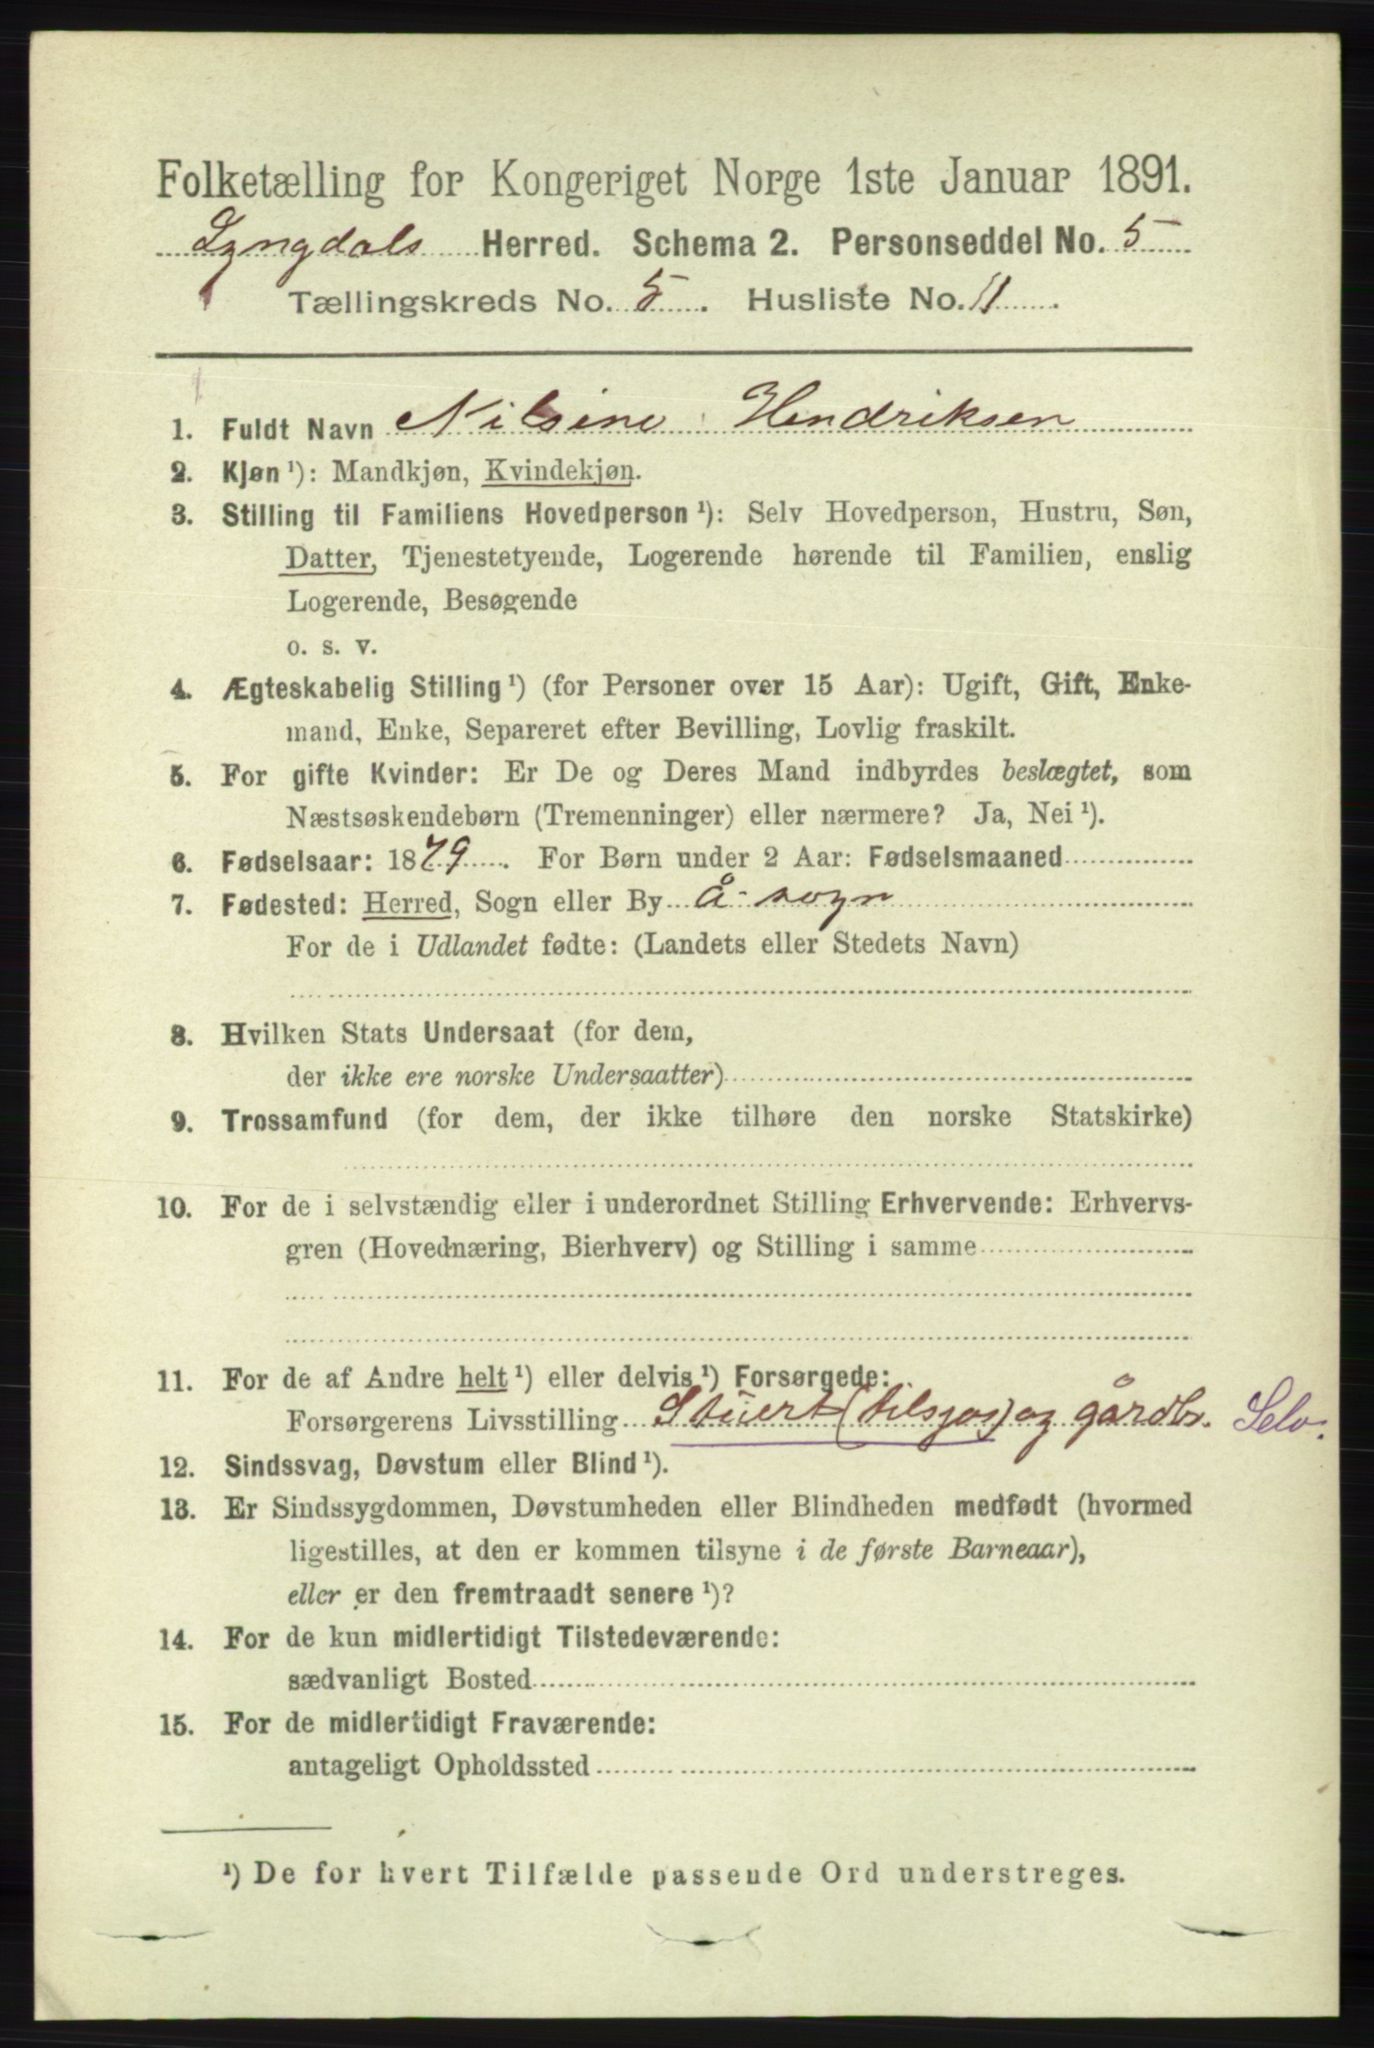 Folketælling for Kongeriget Norge 1ste Januar 1891.
Lyngdals Herred. Schema 2. Personseddel No. 5
Tællingskreds No. 5. Husliste No. 11.
1. Fuldt Navn Nilsine Hendriksen
2. Kjøn ¹): Mandkjøn, Kvindekjøn.
3. Stilling til Familiens Hovedperson ¹): Selv Hovedperson, Hustru, Søn,
Datter, Tjenestetyende, Logerende hørende til Familien, enslig
Logerende, Besøgende
o. s. v.
4. Ægteskabelig Stilling ¹) (for Personer over 15 Aar): Ugift, Gift, Enke-
mand, Enke, Separeret efter Bevilling, Lovlig fraskilt.
5. For gifte Kvinder: Er De og Deres Mand indbyrdes beslægtet, som
Næstsøskendebørn (Tremenninger) eller nærmere? Ja, Nei ¹).
6. Fødselsaar: 1879. For Børn under 2 Aar: Fødselsmaaned
7. Fødested: Herred, Sogn eller By Å-sogn
For de i Udlandet fødte: (Landets eller Stedets Navn)
8. Hvilken Stats Undersaat (for dem,
der ikke ere norske Undersaatter)
9. Trossamfund (for dem, der ikke tilhøre den norske Statskirke)
10. For de i selvstændig eller i underordnet Stilling Erhvervende: Erhvervs-
gren (Hovednæring, Bierhverv) og Stilling i samme
11. For de af Andre helt ¹) eller delvis ¹) Forsørgede:
Forsørgerens Livsstilling Stuert (tilsjøs) og gårdbr. Selv.
12. Sindssvag, Døvstum eller Blind ¹).
13. Er Sindssygdommen, Døvstumheden eller Blindheden medfødt (hvormed
ligestilles, at den er kommen tilsyne i de første Barneaar),
eller er den fremtraadt senere ¹)?
14. For de kun midlertidigt Tilstedeværende:
sædvanligt Bosted
15. For de midlertidigt Fraværende:
antageligt Opholdssted
¹) De for hvert Tilfælde passende Ord understreges.